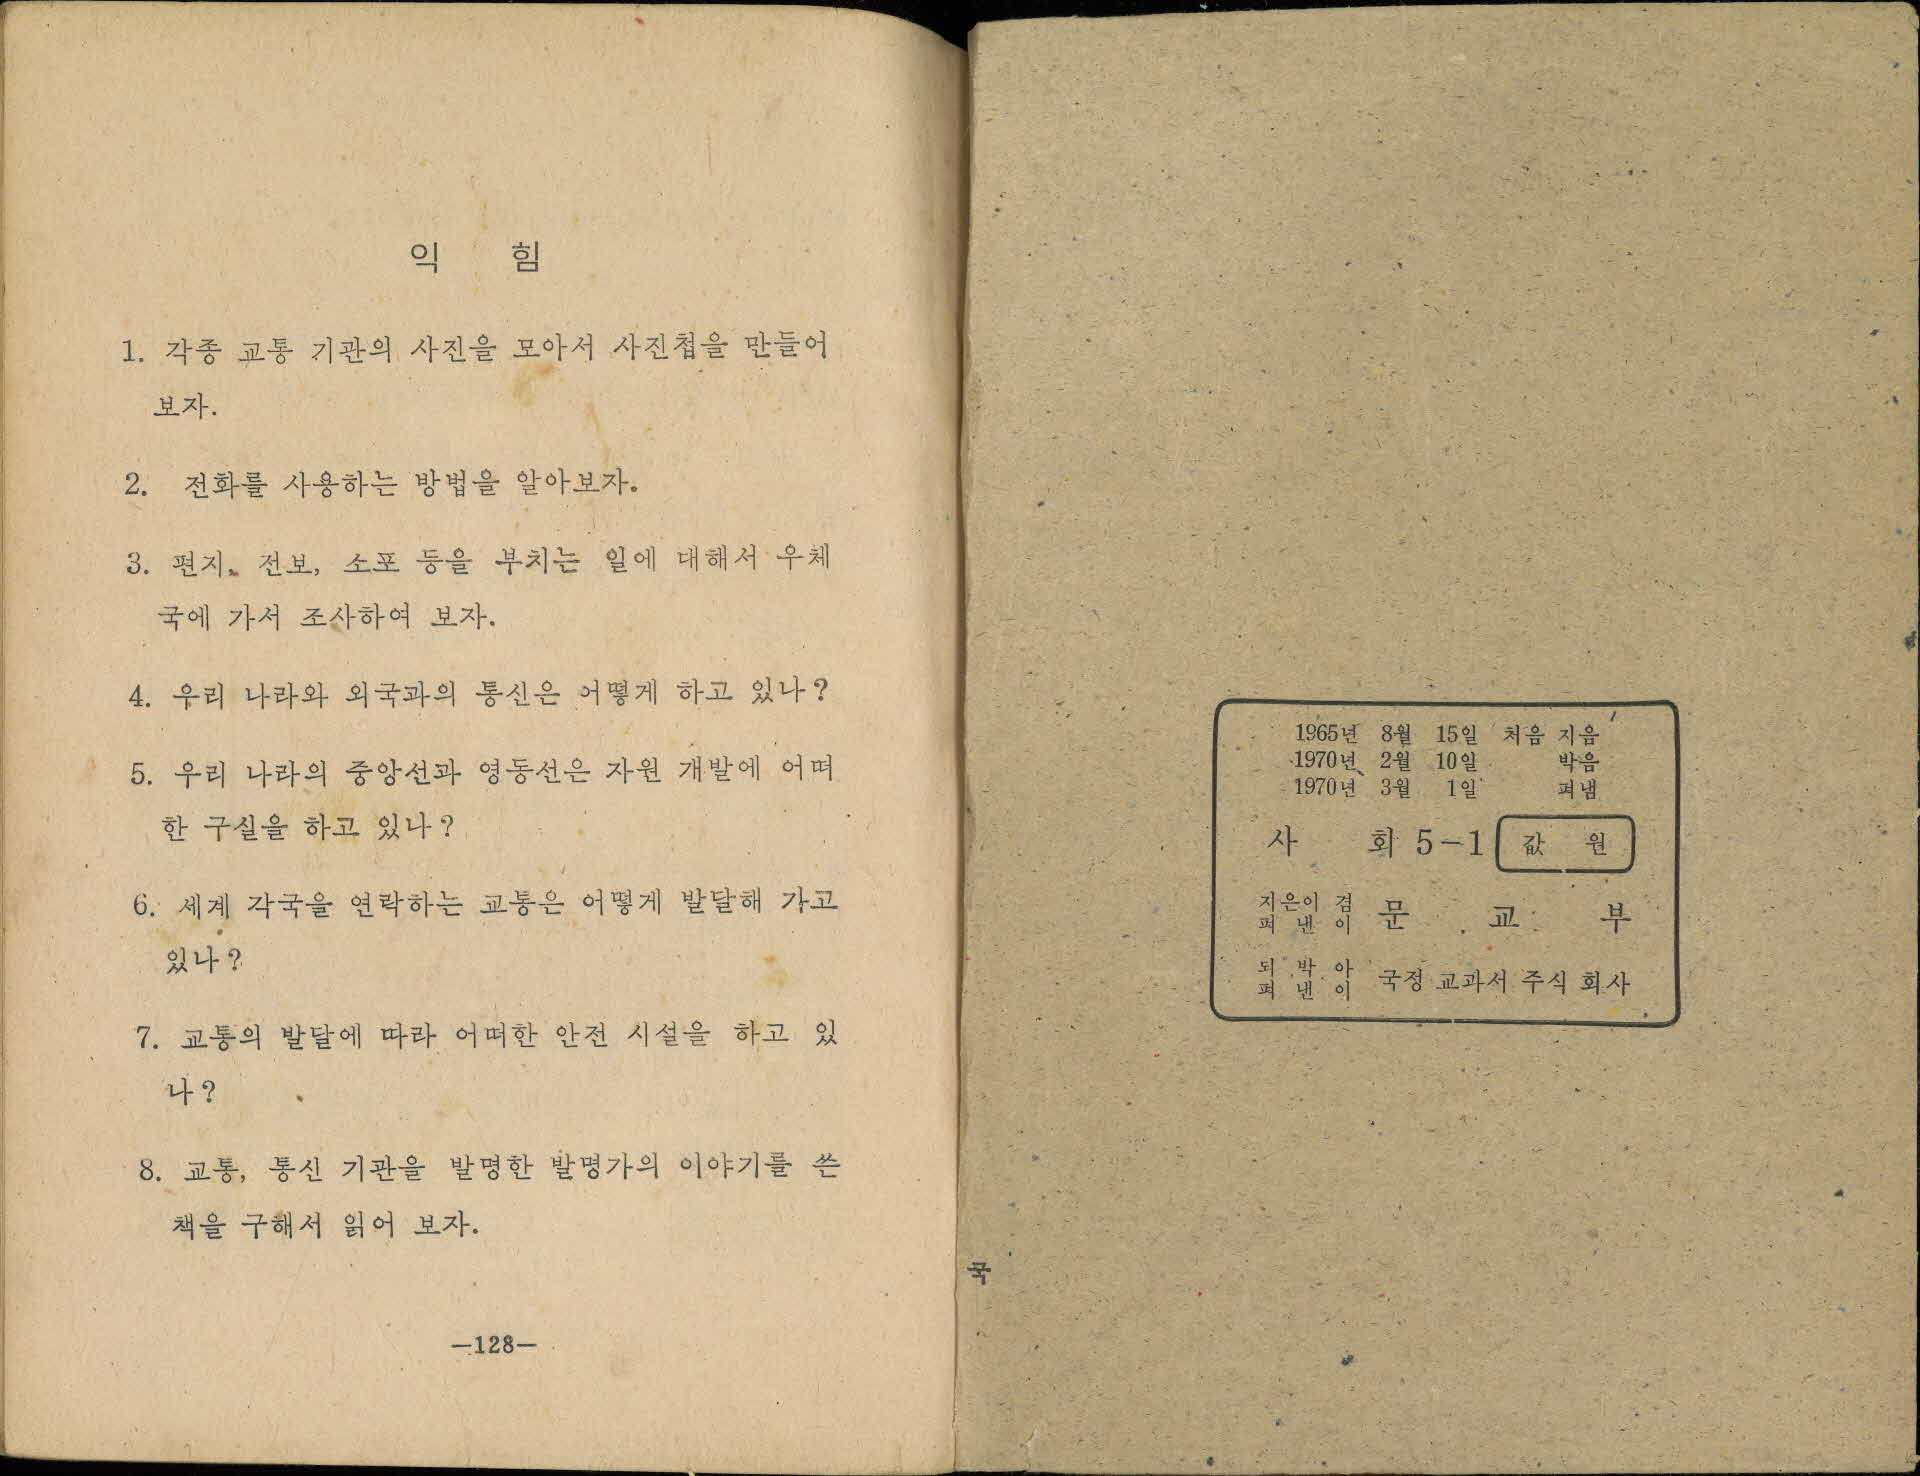 익 힘
1. 각종 교통 기관의 사진을 모아서 사진첩을 만들어
보자.
2. 전화를 사용하는 방법을 알아보자.
3. 편지, 전보, 소포 등을 부치는 일에 대해서 우체
국에 가서 조사하여 보자.
4. 우리 나라와 외국과의 통신은 어떻게 하고 있나?
5. 우리 나라의 중앙선과 영동선은 자원 개발에 어떠
한 구실을 하고 있나?
6. 세계 각국을 연락하는 교통은 어떻게 발달해 가고
있나?
7. 교통의 발달에 따라 어떠한 안전 시설을 하고 있
나?
8. 교통, 통신 기관을 발명한 발명가의 이야기를 쓴
책을 구해서 읽어 보자.
—128—
1965년 8월 15일 처음 지음
1970년 2월 10일 박음
1970년 3월 1일 펴냄
사 회 5-1 값 원
지은이 겸
펴 낸 이 문 교 부
되 박 아
펴 낸 이 국정 교과서 주식 회사
국